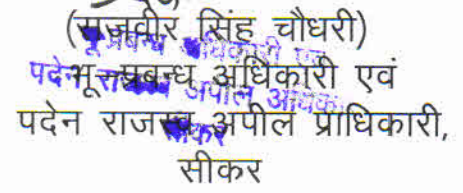 (राजवीर सिंह चौधरी)
भू-प्रबन्ध अधिकारी एवं
पदेन राजस्व अपील प्राधिकारी,
सीकर
भू प्रबन्ध अधिकारी एवं
पदेन राजस्व अपील अधिक
सीकर